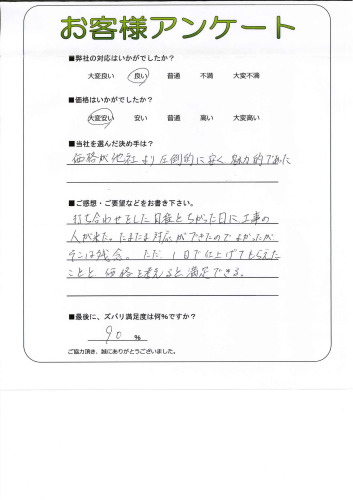 お客様アンケート
■弊社の対応はいかがでしたか？
大変良い 良い 普通 不満 大変不満
■価格はいかがでしたか？
大変安い 安い 普通 高い 大変高い
■当社を選んだ決め手は？
価格が他社より圧倒的に安く魅力的であった
■ご感想・ご要望などをお書き下さい。
打ち合わせをした日程とちがった日に工事の
人が来た。たまたま対応ができたのでよかったが
そこは残念。ただ、1日で仕上げてもらえた
ことと、価格を考えると満足できる。
■最後に、ズバリ満足度は何%ですか？
90 %
ご協力頂き、誠にありがとうございました。